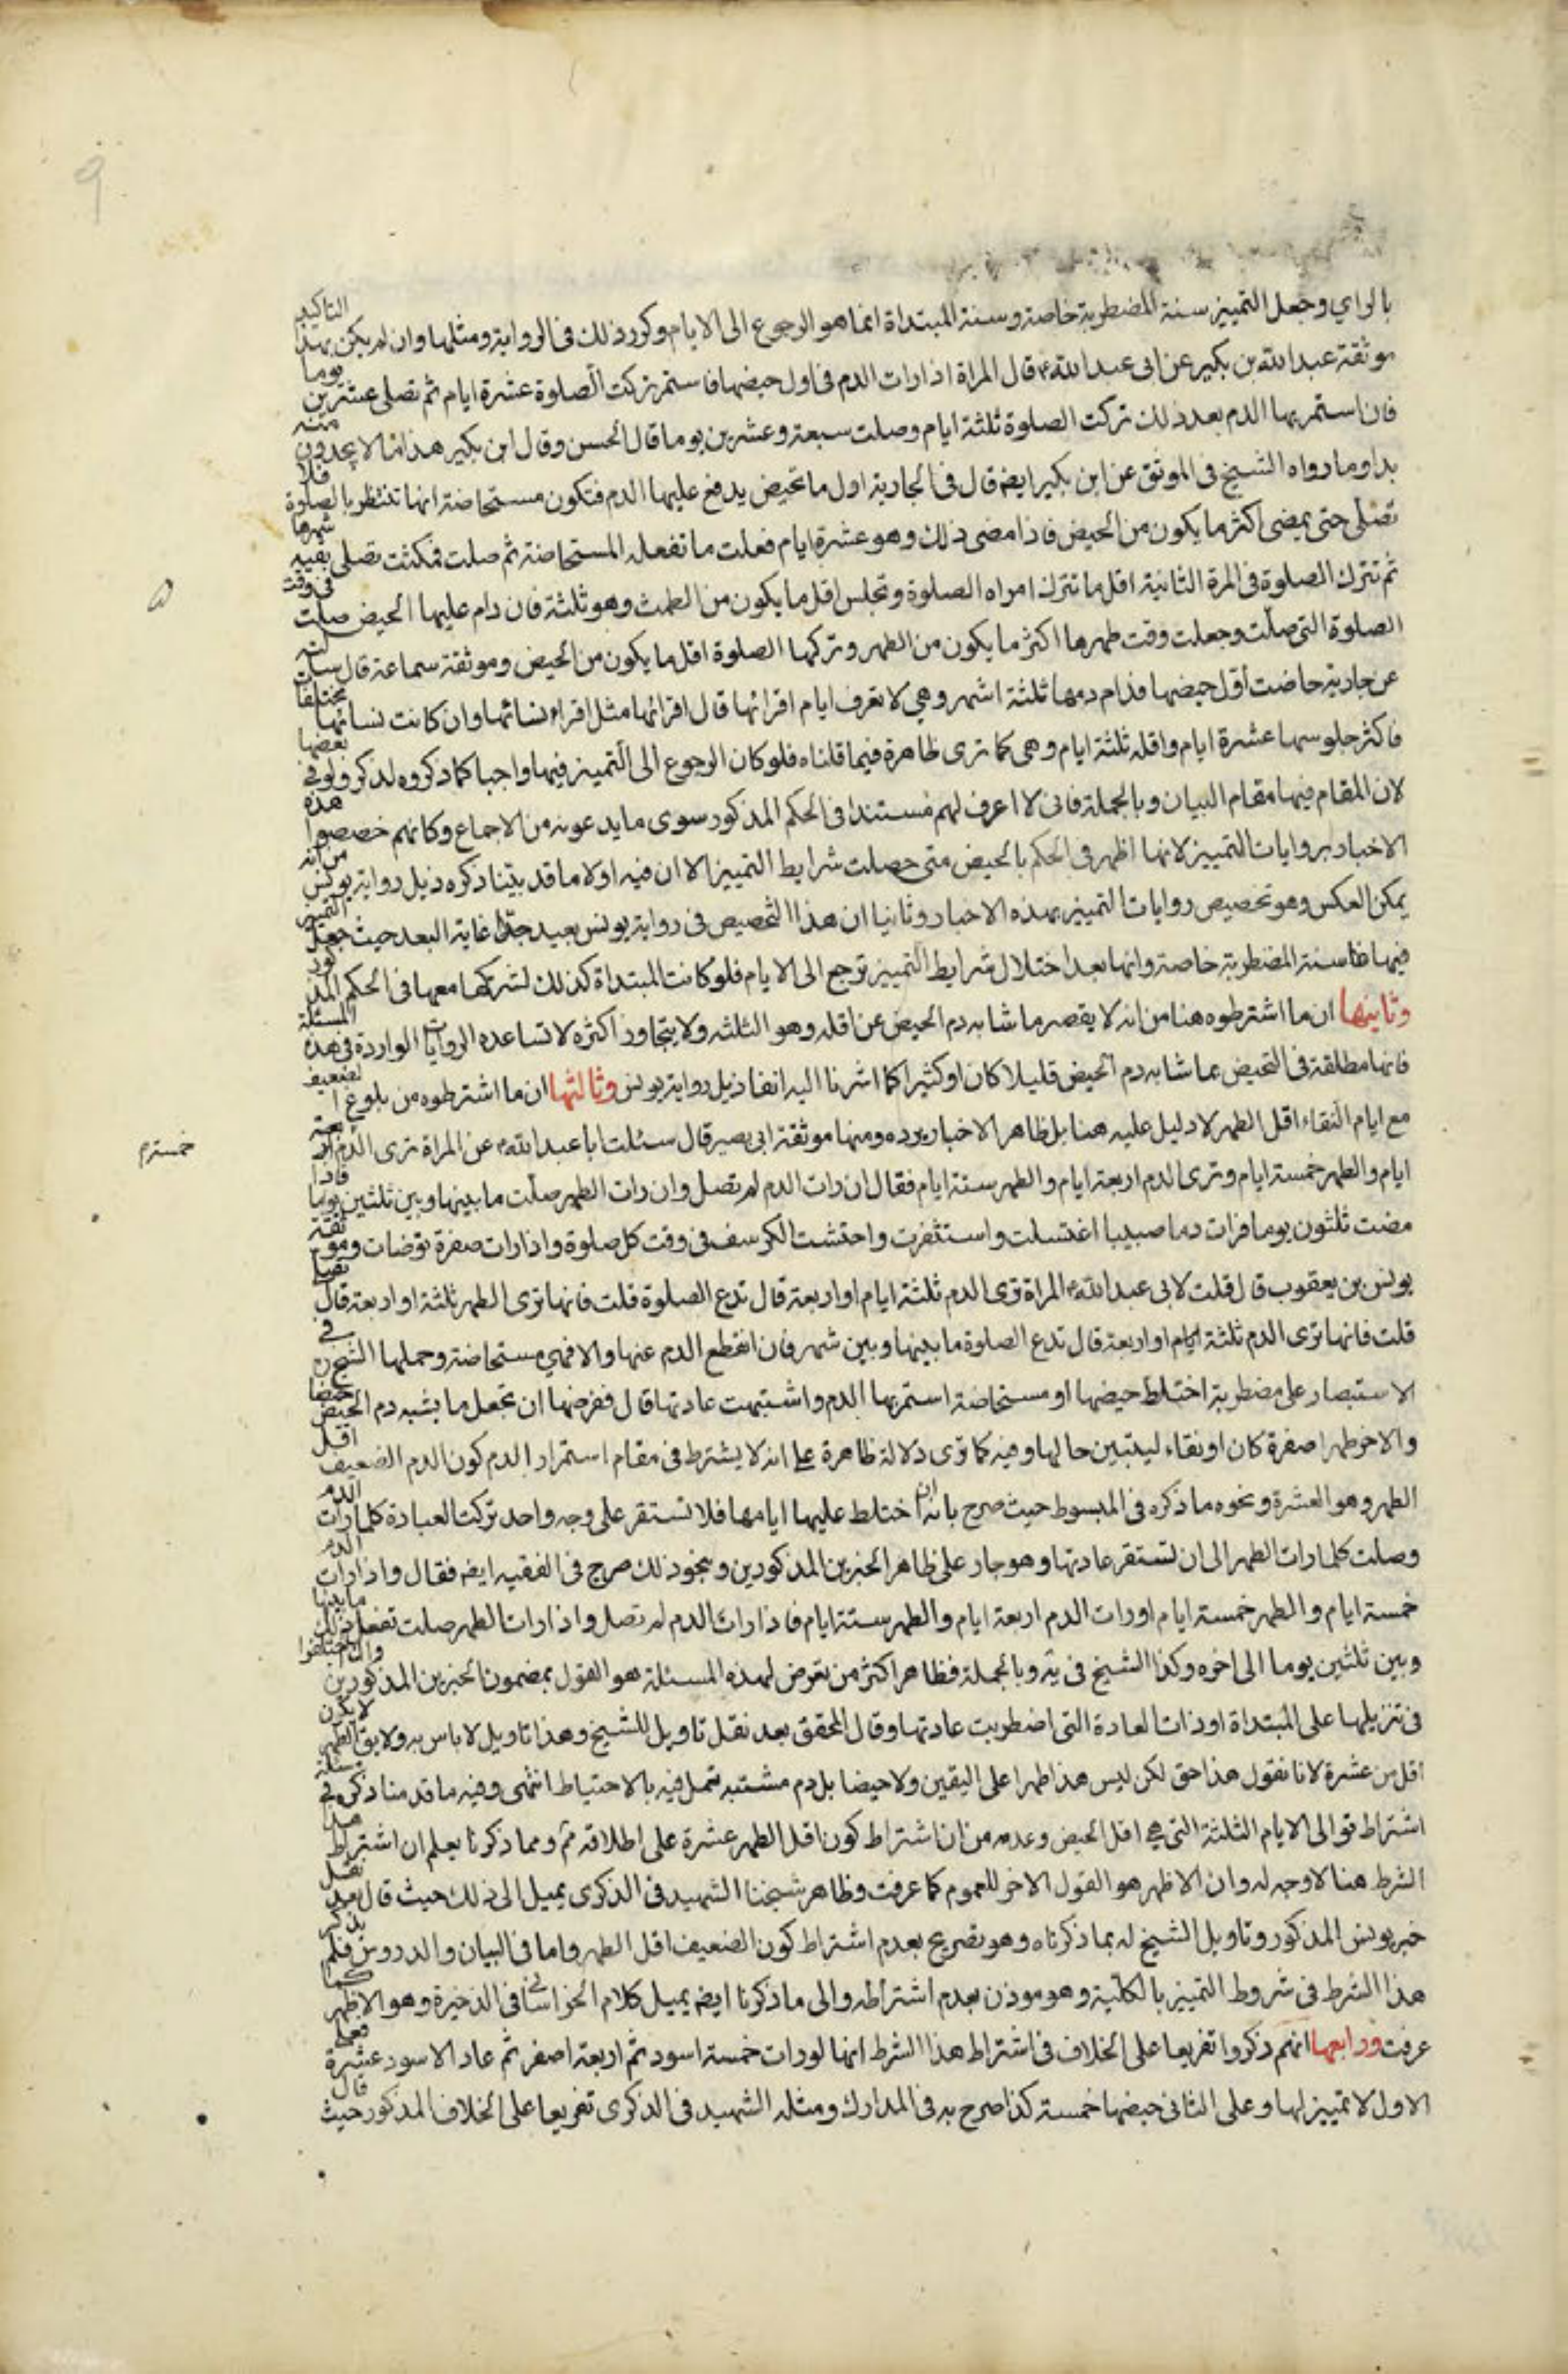 بالراي وجعل التمييز سنة المضطربة خاصة وسنة المبتداة انما هو الرجوع الى الايام وكرر ذلك في الرواية ومثلها وان لم يكن بهذا التاكيد
موثقة عبد الله بن بكير عن ابى عبد الله ع قال المراة اذا رات الدم فى اول حيضها فاستمر تركت الصلوة عشرة ايام ثم تصلى عشرين يوما
فان استمر بها الدم بعد ذلك تركت الصلوة ثلثة ايام وصلت سبعة وعشرين يوما قال الحسن وقال ابن بكير هذا مما لا يجدون منه
بدا وما رواه الشيخ فى الموثق عن ابن بكير ايضه قال فى الجارية اول ما تحيض يدفع عليها الدم فتكون مستحاضة انها تنتظر بالصلوة فلا
تصلى حتى يمضى اكثر ما يكون من الحيض فاذا مضى ذلك وهو عشرة ايام فعلت ما تفعله المستحاضة ثم صلت فمكثت تصلى بقية شهرها
ثم تترك الصلوة فى المرة الثانية اقل ما تترك امراه الصلوة وتجلس اقل ما يكون من الطمث وهو ثلثة فان دام عليها الحيض صلت فى وقت
الصلوة التى صلت وجعلت وقت طهرها اكثر ما يكون من الطهر وتركها الصلوة اقل ما يكون من الحيض وموثقة سماعة قال سالته
عن جارية حاضت اول حيضها فدام دمها ثلثة اشهر وهي لا تعرف ايام اقرائها قال اقرائها مثل اقراء نسائها وان كانت نسائها مختلفا
فاكثر جلوسها عشرة ايام واقله ثلثة ايام وهى كما ترى ظاهرة فيما قلناه فلو كان الرجوع الى التمييز فيها واجبا كما ذكروه لذكر ولو فى بعضها
لان المقام فيها مقام البيان وبالجملة فانى لا اعرف لهم مستندا فى الحكم المذكور سوى ما يدعونه من الاجماع وكانهم خصصوا هذه
الاخبار بروايات التمييز لانها اظهر فى الحكم بالحيض متى حصلت شرايط التمييز الا ان فيه اولا ما قد بينا ذكره ذيل رواية يونس من انه
يمكن العكس وهو تخصيص روايات التمييز بهذه الاخبار وثانيا ان هذا التخصيص فى رواية يونس بعيد جدا غاية البعد حيث جعل التمييز
فيها سنة المضطربة خاصة وانها بعد اختلال شرايط التمييز ترجع الى الايام فلو كانت المبتداة كذلك لشركها معها فى الحكم المذكور
وثانيها ان ما اشترطوه هنا من انه لا يقصر ما شابه دم الحيض عن اقله وهو الثلثه ولا يتجاوز اكثره لا تساعده الروايات الواردة فى هذه المسئلة
فانها مطلقة فى التحيض بما شابه دم الحيض قليلا كان او كثيرا كما اشرنا اليه انفا ذيل رواية يونس وثالثها ان ما اشترطوه من بلوغ الضعيف
مع ايام النقاء اقل الطهر لا دليل عليه هنا بل ظاهر الاخبار يرده ومنها موثقة ابى بصير قال سئلت ابا عبد الله ع عن المراة ترى الدم اربعة
ايام والطهر خمسة ايام وترى الدم اربعة ايام والطهر ستة ايام فقال ان رات الدم لم تصل وان رات الطهر صلت ما بينها وبين ثلثين يوما فاذا
مضت ثلثون يوما فرات دما صبيبا اغتسلت واستثفرت واحتشت الكرسف فى وقت كل صلوة واذا رات صفرة توضات وموثقة
يونس بن يعقوب قال قلت لابى عبد الله ع المراة ترى الدم ثلثة ايام او اربعة قال تدع الصلوة قلت فانها ترى الطهر ثلثة او اربعة قال تصلى
قلت فانها ترى الدم ثلثة ايام او اربعة قال تدع الصلوة ما بينها وبين شهر فان انقطع الدم عنها والا فهى مستحاضة وحملها الشيخ فى
الاستبصار على مضطربة اختلط حيضها او مستحاضة استمر بها الدم واشتبهت عادتها قال ففرضها ان تجعل ما يشبه دم الحيض حيضا
والاخر طهرا صفرة كان او نقاء ليتبين حالها وفيه كما ترى دلالة ظاهرة على انه لا يشترط فى مقام استمرار الدم كون الدم الضعيف اقل
الطهر وهو العشرة ونحوه ما ذكره فى المبسوط حيث صرح بانه ان اختلط عليها ايامها فلا تستقر على وجه واحد تركت العبادة كلما رات الدم
وصلت كلما رات الطهر الى ان تستقر عادتها وهو جار على ظاهر الخبرين المذكورين وبنحو ذلك صرح فى الفقيه ايضه فقال واذا رات الدم
خمسة ايام والطهر خمسة ايام او رات الدم اربعة ايام والطهر ستة ايام فاذا رات الدم لم تصل واذا رات الطهر صلت تفعل ذلك ما بينها
وبين ثلثين يوما الى اخره وكذا الشيخ فى يه وبالجملة فظاهر اكثر من تعرض لهذه المسئلة هو القول بمضمون الخبرين المذكورين وان اختلفوا
فى تنزيلها على المبتداة او ذات العادة التى اضطربت عادتها وقال المحقق بعد نقل تاويل للشيخ وهذا تاويل لا باس به ولا يق الطهر لا يكون
اقل من عشرة لانا نقول هذا حق لكن ليس هذا طهرا على اليقين ولا حيضا بل دم مشتبه تعمل فيه بالاحتياط انتهى وفيه ما قدمنا ذكره فى مسئلة
اشتراط توالى الايام الثلثة التى هى اقل الحيض وعدمه من ان اشتراط كون اقل الطهر عشرة على اطلاقه مم ومما ذكرنا يعلم ان اشتراط هذا
الشرط هنا لا وجه له وان الاظهر هو القول الاخر للعموم كما عرفت وظاهر شيخنا الشهيد فى الذكرى يميل الى ذلك حيث قال بعد نقل
خبر يونس المذكور وتاويل الشيخ له بما ذكرناه وهو تصريح بعدم اشتراط كون الضعيف اقل الطهر واما فى البيان والدروس فلم يذكر
هذا الشرط فى شروط التمييز بالكلية وهو موذن بعدم اشتراطه والى ما ذكرنا ايضه يميل كلام الخراسانى فى الذخيرة وهو الاظهر كما
عرفت ورابعها انهم ذكروا تفريعا على الخلاف فى اشتراط هذا الشرط انها لو رات خمسة اسود ثم اربعة اصفر ثم عاد الاسود عشرة فعلى
الاول لا تمييز لها وعلى الثانى حيضها خمسة كذا صرح به فى المدارك ومثله الشهيد فى الذكرى تفريعا على الخلاف المذكور حيث قال